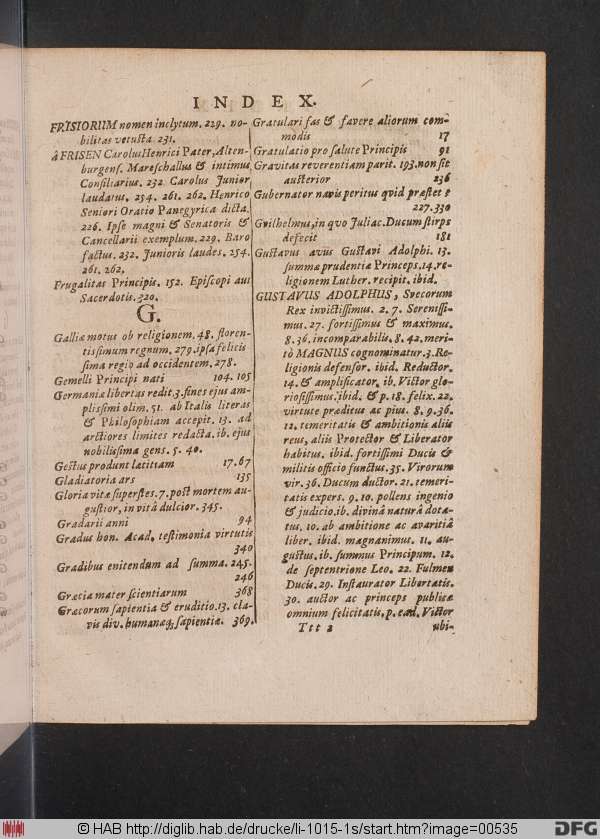 INDEX.
FRISIORUM nomen inclytum. 229. no-
bilitas vetusta. 231.
â FRISEN Carolus Henrici Pater, Alten-
burgens. Mareschallus & intimus
Consiliarius. 232. Carolus Junior
laudatus. 254. 261. 262. Henrico
Seniori Oratio Panegyrica dicta.
226. Ipse magni & Senatoris &
Cancellarii exemplum. 229. Baro
factus. 232. Junioris laudes. 254.
261. 262.
Frugalitas Principis. 152. Episcopi aut
Sacerdotis. 320.
G.
Galliæ motus ob religionem. 48. floren-
tissimum regnum. 279. ipsa felicis
sima regio ad occidentem. 278.
Gemelli Principi nati 104. 105
Germaniæ libertas redit. 3. fines ejus am-
plissimi olim. 51. ab Italis literas
& Philosophiam accepit. 13. ad
arctiores limites redacta. ib. ejus
nobilissima gens. 5. 40.
Gestus produnt lætitiam 17. 67
Gladiatoria ars 135
Gloria vitæ superstes. 7. post mortem au-
gustior, in vitâ dulcior. 345.
Gradarii anni 94
Gradus hon. Acad. testimonia virtutis
340
Gradibus enitendum ad summa. 245.
246
Græcia mater scientiarum 368
Græcorum sapientia & eruditio. 13. cla-
vis div. humanæq; sapientiæ. 369.
Gratulari fas & favere aliorum com-
modis 17
Gratulatio pro salute Principis 91
Gravitas reverentiam parit. 193. non sit
austerior 236
Gubernator navis peritus qvid præstet?
227. 330
Gvilhelmus, in qvo Juliac. Ducum stirps
defecit 181
Gustavus avus Gustavi Adolphi. 13.
summæ prudentiæ Princeps. 14. re-
ligionem Luther. recipit. ibid.
GUSTAVUS ADOLPHUS, Svecorum
Rex invictissimus. 2. 7. Serenissi-
mus. 27. fortissimus & maximus.
8. 36. incomparabilis. 8. 42. meri-
tò MAGNUS cognominatur. 3. Re-
ligionis defensor. ibid. Reductor.
14. & amplificator. ib. Victor glo-
riosissimus. ibid. & p. 18. felix. 22.
virtute præditus ac pius. 8. 9. 36.
12. temeritatis & ambitionis aliis
reus, aliis Protector & Liberator
habitus. ibid. fortissimi Ducis &
militis officio functus. 35. Virorum
vir. 36. Ducum ductor. 21. temeri-
tatis expers. 9. 10. pollens ingenio
& judicio. ib. divinâ naturâ dota-
tus. 10. ab ambitione ac avaritiâ
liber. ibid. magnanimus. 11. au-
gustus. ib. summus Principum. 12.
de septentrione Leo. 22. Fulmen
Ducis. 29. Instaurator Libertatis.
30. auctor ac princeps publicæ
omnium felicitatis, p. ead. Victor
Ttt 2 ubi-
© HAB http://diglib.hab.de/drucke/li-1015-1s/start.htm?image=00535
DFG